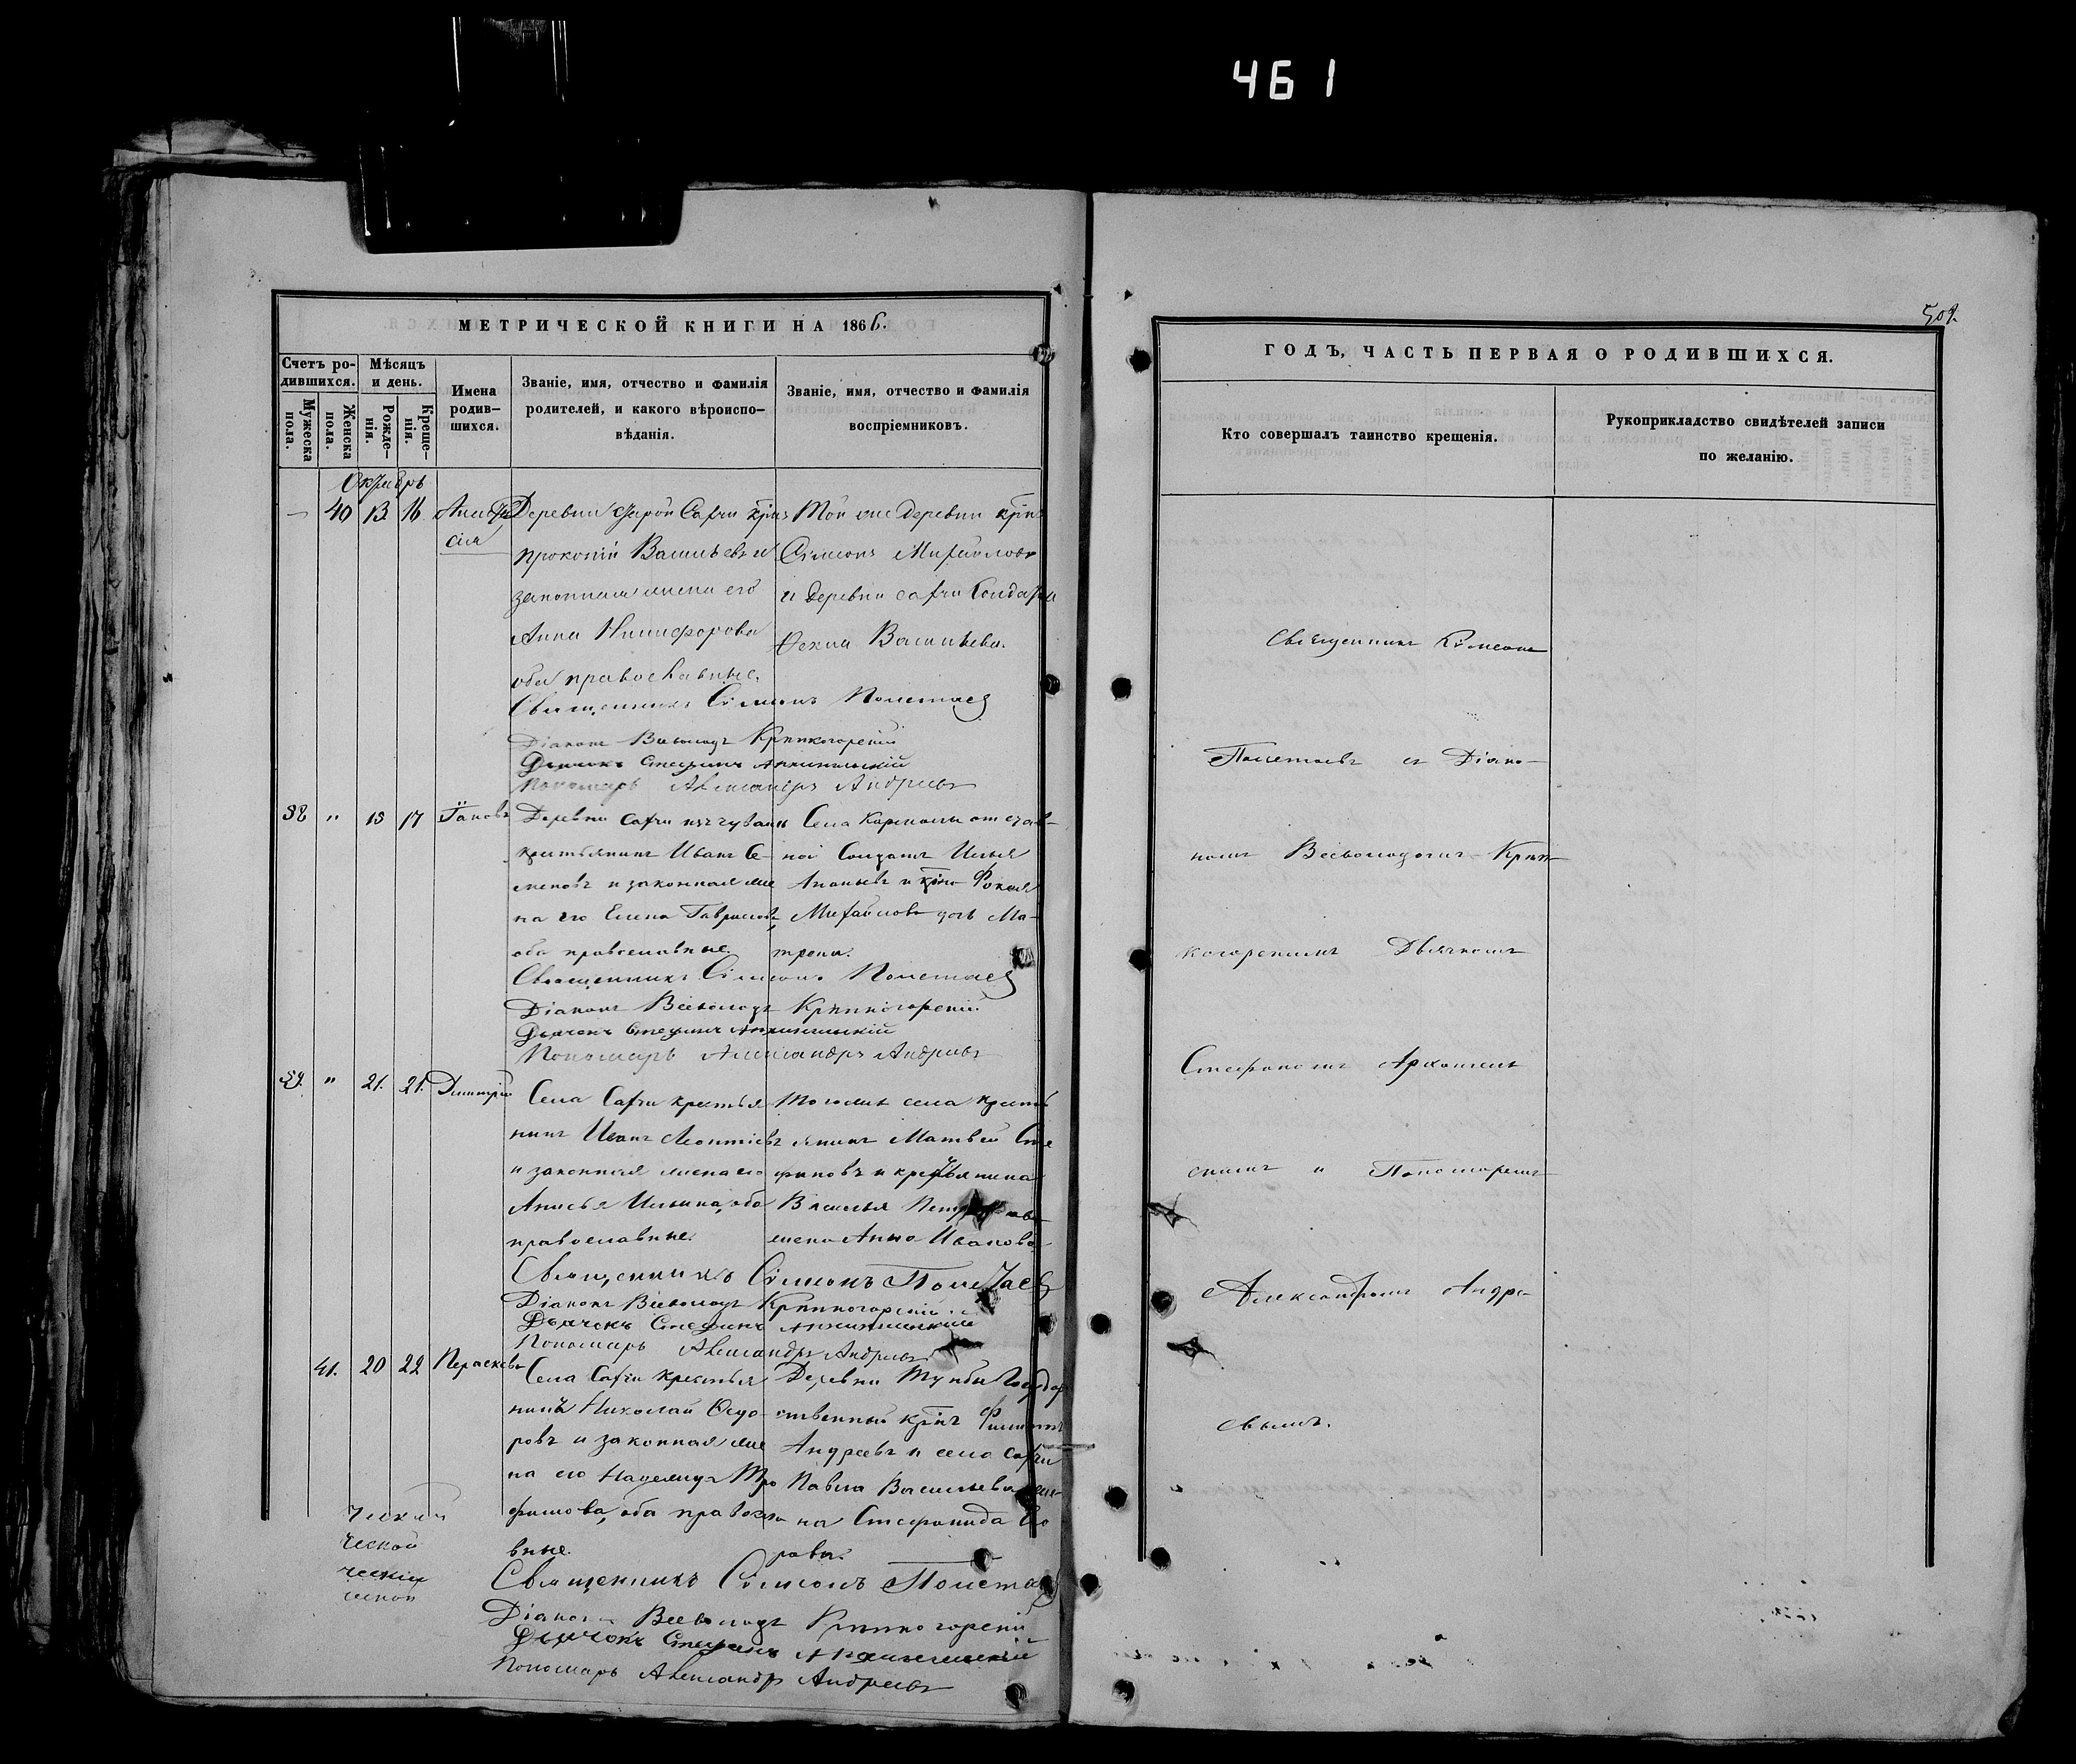 461
509.
МЕТРИЧЕСКОЙ КНИГИ НА 1866.
Счетъ ро-
дившихся.
Мужеска пола.
Женска пола.
Мѣсяцъ
и день.
Рожде-
нія.
Креще-
нія.
Имена
родив-
шихся.
Званіе, имя, отчество и фамилія
родителей, и какого вѣроиспо-
вѣданія.
Званіе, имя, отчество и фамилія
воспріемниковъ.
Октябрь
— 40 13 16 Анаста
сія
Деревни Старой Сахчи
Прокопій Васильевъ и
законная жена его
Анна Никифорова
оба православные.
Той же деревни
Симеонъ Михайловъ
и деревни Сахчи Солдатка
Васильева.
Священникъ Симеонъ Полетаев
Діаконъ Всеволодъ Крипкогорскій
Дьячокъ Стефанъ Архангельскій
Пономарь Александръ Андреевъ
58 " 15 17 Іаковъ
Деревни Сахчи изъ чувашъ
крестьянинъ Иванъ Се-
меновъ и законная же
на его Елена Гаврилова
оба православные.
Села Кармалы отстав-
ной Солдатъ Илья
Ананьевъ и
Михайлова дочь Ма-
трона.
Священникъ Симеонъ Полетаев
Діаконъ Всеволодъ Крипкогорскій
Дьячокъ Стефанъ Архангельскій
Пономарь Александръ Андреевъ
59. " 21. 21. Димитрій
Села Сахчи крестья
нинъ Иванъ Леонтіевъ
и законная жена его
Анисья Ильина, оба
православные.
Того же села кресть
янинъ Матвей Сте
фановъ и крестьянина
Василья Петрова
жена Анна Иванова
Священникъ Симеонъ Полетаев
Діаконъ Всеволодъ Крипкогорскій
Дьячокъ Стефанъ Архангельскій
Пономарь Александръ Андреевъ
41. 20 22 Параскева
Села Сахчи крестья
нинъ Николай Федо-
ровъ и законная же
на его Надежда Тро
фимова, оба правосла
вные.
Деревни Государ
ственный Филиппъ
Андреевъ и села Сахчи
Павла Васильева же-
на Стефанида
Священникъ Симеонъ Полетаев
Діаконъ Всеволодъ Крипкогорскій
Дьячокъ Стефанъ Архангельскій
Пономарь Александръ Андреевъ
ческой
ГОДЪ, ЧАСТЬ ПЕРВАЯ О РОДИВШИХСЯ.
Кто совершалъ таинство крещенія.
Рукоприкладство свидѣтелей записи
по желанію.
Священникъ Симеонъ
Полетаевъ съ Діако-
номъ Всеволодомъ Крип-
когорскимъ Дьячкомъ
Стефаномъ Архангель
скимъ и Пономаремъ
Александромъ Андре-
евымъ.